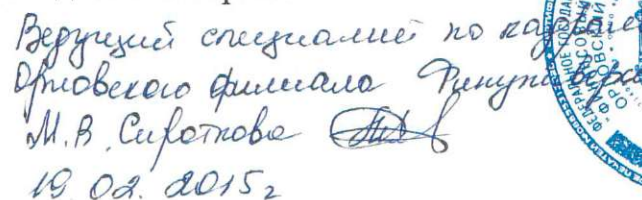 Ведущий специалист по кадрам
Орловского филиала Финуниверси
М.В. Сироткова
19.02.2015г